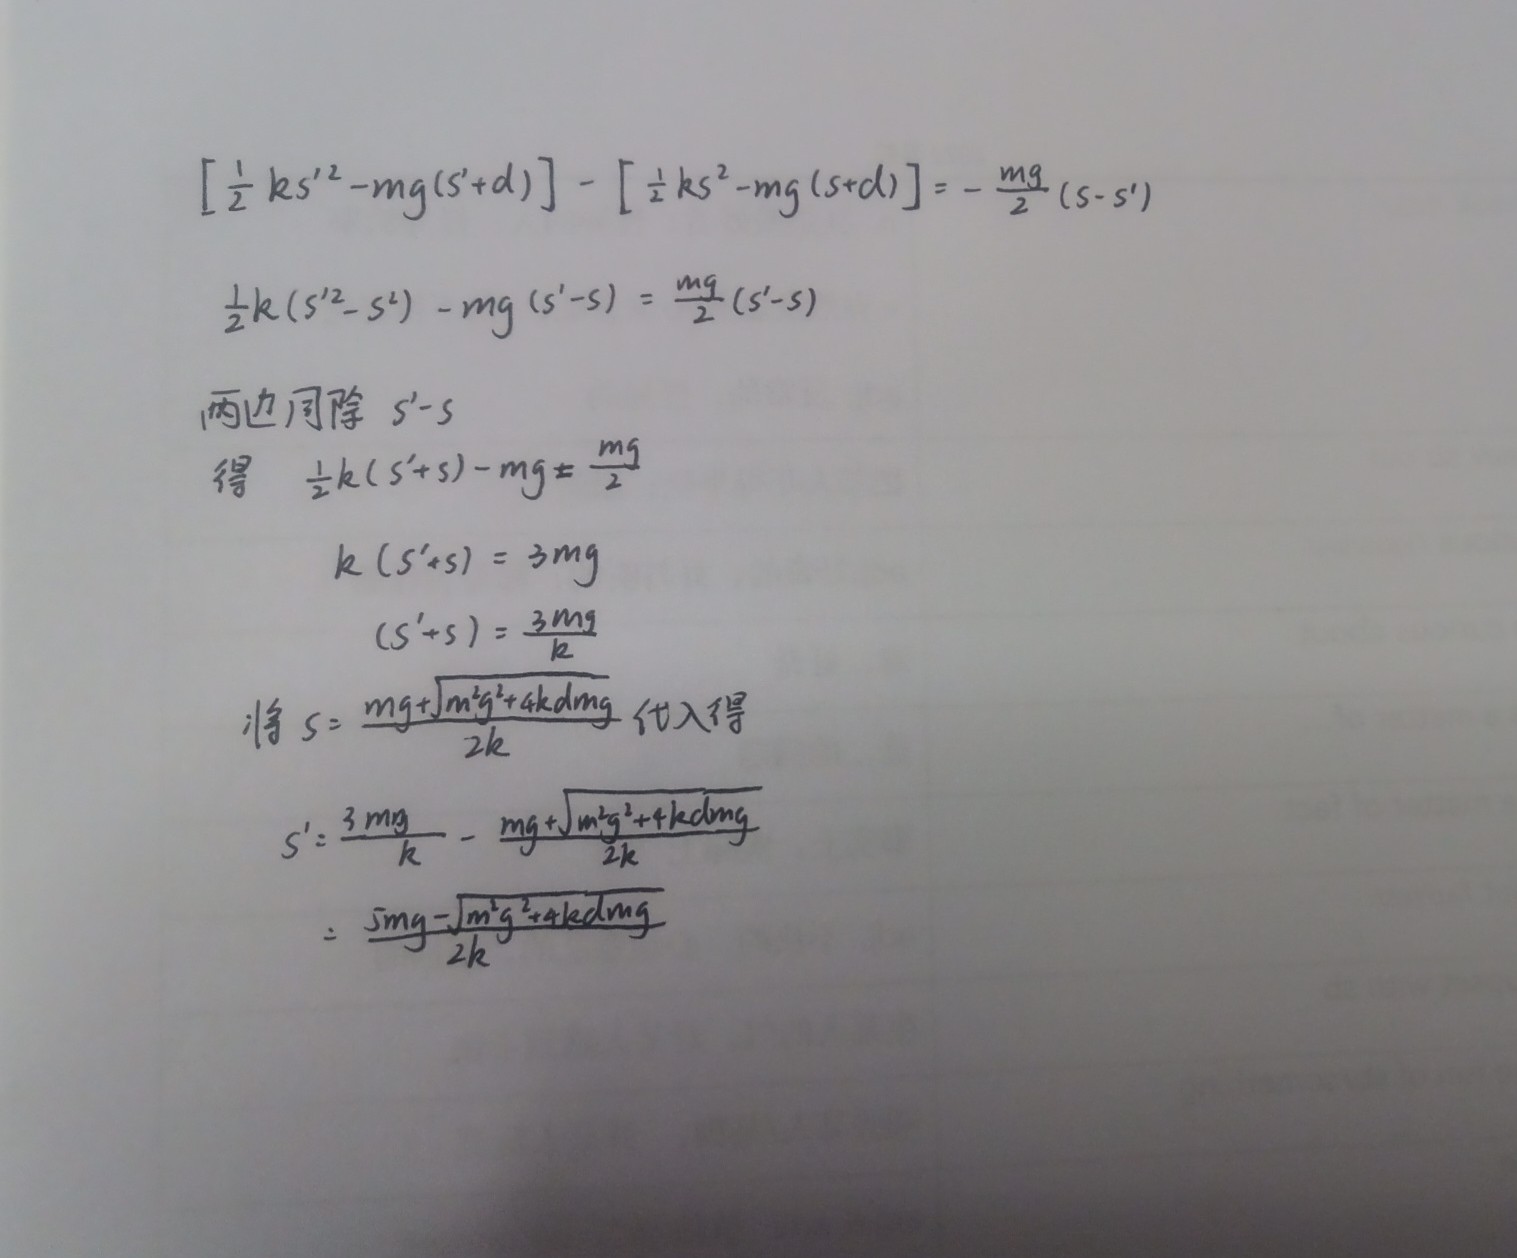 [½ks'²-mg(s'+d)] - [½ks²-mg(s+d)] = - mg/2 (s-s')
½k(s'²-s²) - mg(s'-s) = mg/2 (s'-s)
两边同除 s'-s
得 ½k(s'+s)-mg = mg/2
k(s'+s) = 3mg
(s'+s) = 3mg/k
将 s = (mg+√(m²g²+4kdmg))/2k 代入得
s' = 3mg/k - (mg+√(m²g²+4kdmg))/2k
= (5mg-√(m²g²+4kdmg))/2k